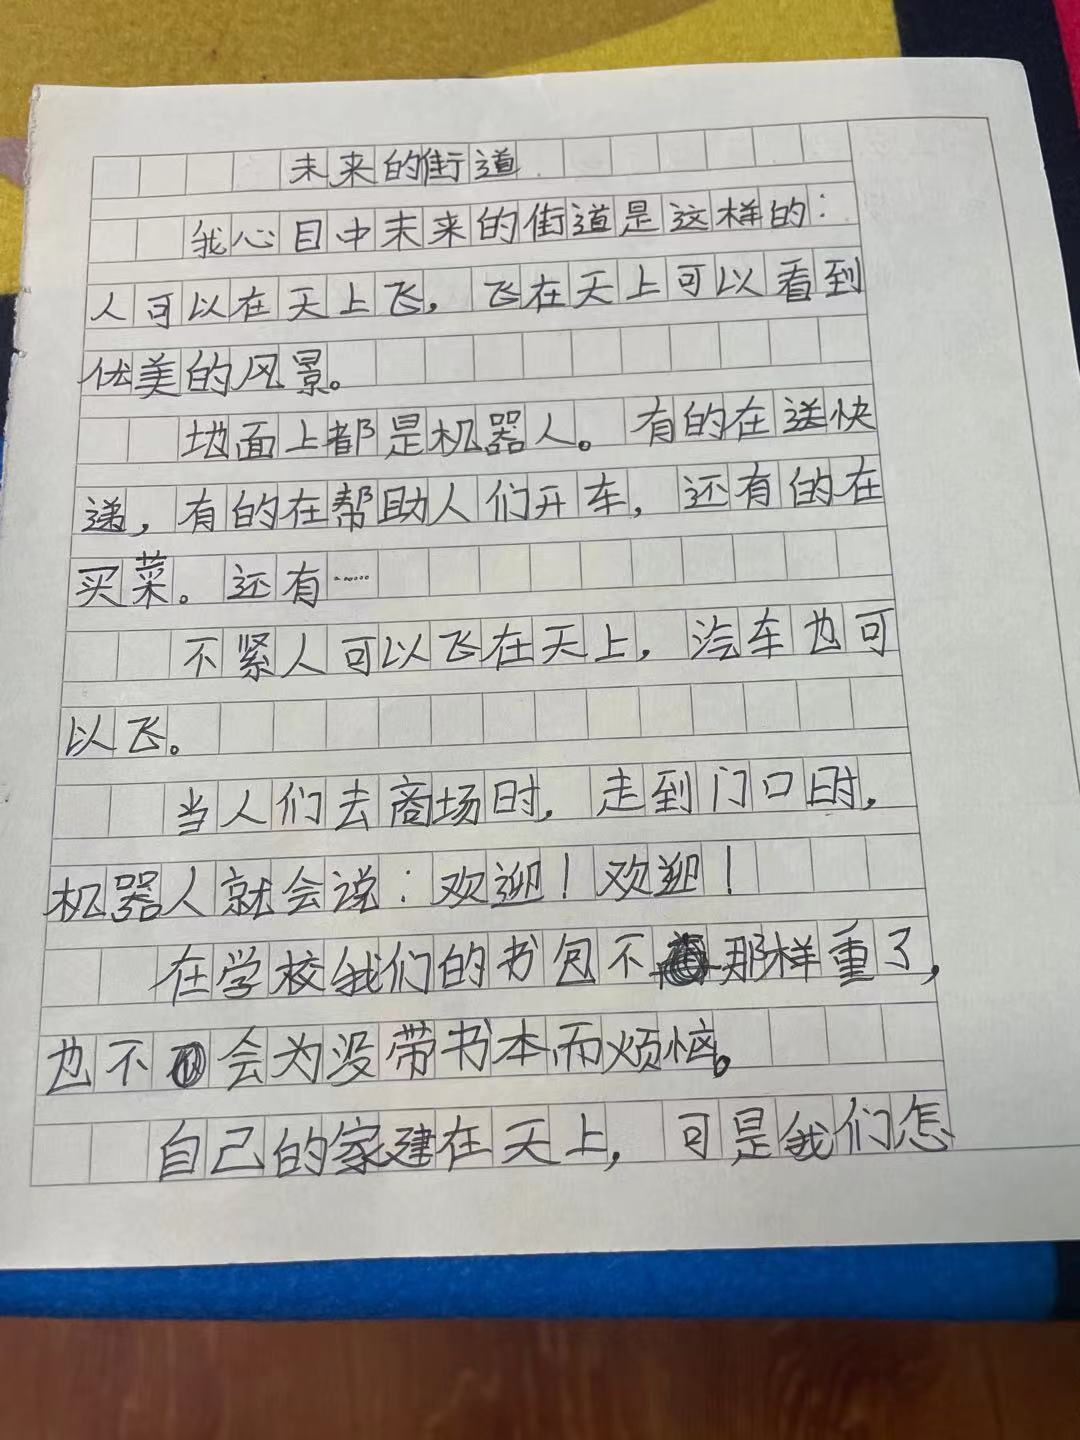 未来的街道
我心目中未来的街道是这样的：
人可以在天上飞，飞在天上可以看到
优美的风景。
地面上都是机器人。有的在送快
递，有的在帮助人们开车，还有的在
买菜。还有……
不紧人可以飞在天上，汽车也可
以飞。
当人们去商场时，走到门口时，
机器人就会说：欢迎！欢迎！
在学校我们的书包不那样重了，
也不会为没带书本而烦恼。
自己的家建在天上，可是我们怎